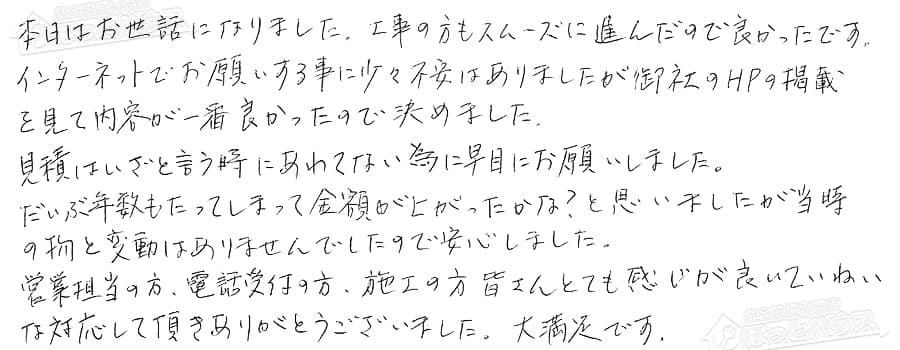 本日はお世話になりました。工事の方もスムーズに進んだので良かったです。
インターネットでお願いする事に少々不安はありましたが御社のHPの掲載
を見て内容が一番良かったので決めました。
見積はいざと言う時にあわてない為に早目にお願いしました。
だいぶ年数もたってしまって金額が上がったかな?と思いましたが当時
の物と変動はありませんでしたので安心しました。
営業担当の方、電話受付の方、施工の方皆さんとても感じが良いていねい
な対応して頂きありがとうございました。大満足です。